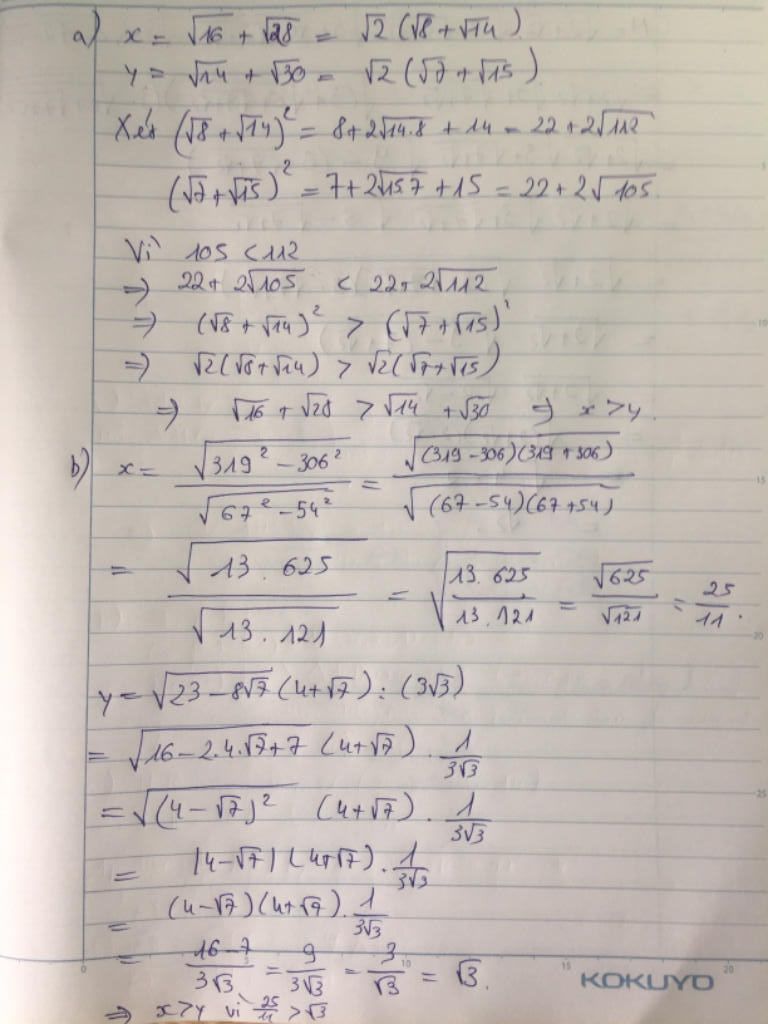 a) x = √16 + √28 = √2 (√8 + √14)
y = √14 + √30 = √2 (√7 + √15)
Xét (√8 + √14)² = 8 + 2√14.8 + 14 = 22 + 2√112
(√7 + √15)² = 7 + 2√15.7 + 15 = 22 + 2√105.
Vì 105 < 112
=> 22 + 2√105 < 22 + 2√112
=> (√8 + √14)² > (√7 + √15)²
=> √2(√8 + √14) > √2(√7 + √15)
=> √16 + √28 > √14 + √30 => x > y.
b) x = √(319² - 306²) / √(67² - 54²) = √((319 - 306)(319 + 306)) / √((67 - 54)(67 + 54))
= √(13 . 625) / √(13 . 121) = √(13.625 / 13.121) = √625 / √121 = 25/11.
y = √(23 - 8√7) (4 + √7) : (3√3)
= √(16 - 2.4.√7 + 7) (4 + √7) . 1/(3√3)
= √((4 - √7)²) (4 + √7) . 1/(3√3)
= |4 - √7| (4 + √7) . 1/(3√3)
= (4 - √7)(4 + √7) . 1/(3√3)
= (16 - 7)/(3√3) = 9/(3√3) = 3/√3 = √3.
=> x > y vì 25/11 > √3
KOKUYO